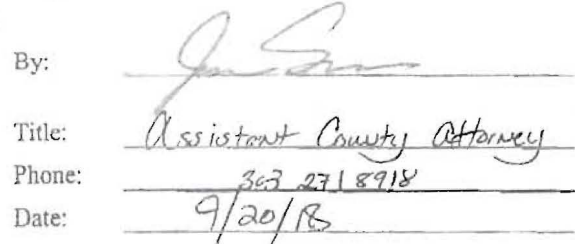 By:
Title: Assistant County Attorney
Phone: 303 271 8918
Date: 9/20/18